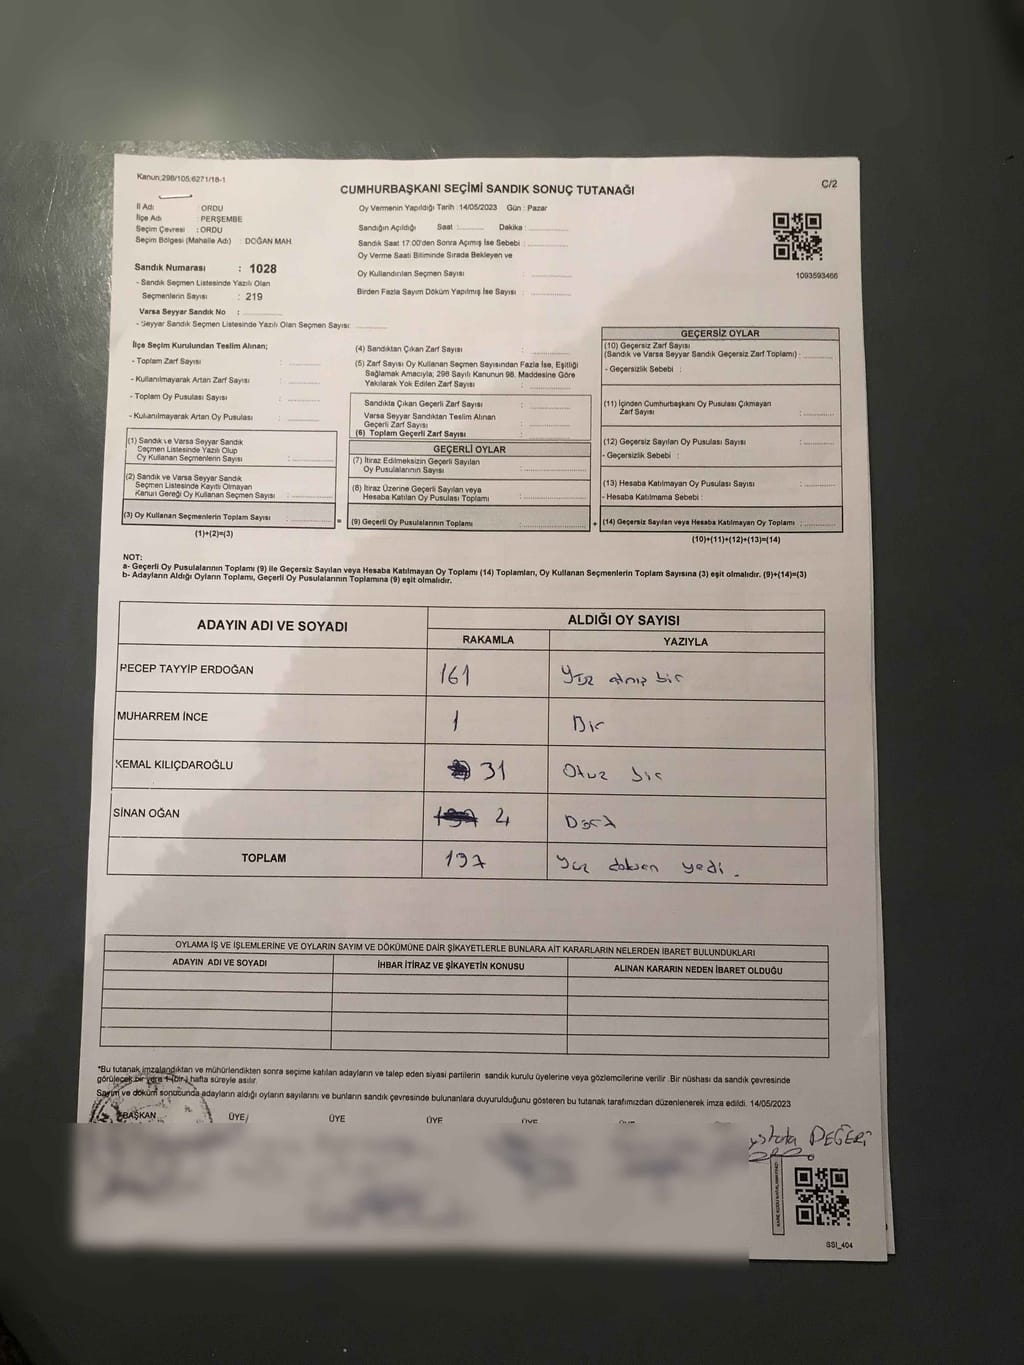 Kanun;298/105,6271/18-1
C/2
CUMHURBAŞKANI SEÇİMİ SANDIK SONUÇ TUTANAĞI
İl Adı : ORDU
İlçe Adı : PERŞEMBE
Seçim Çevresi : ORDU
Seçim Bölgesi (Mahalle Adı) : DOĞAN MAH.
Sandık Numarası : 1028
- Sandık Seçmen Listesinde Yazılı Olan
Seçmenlerin Sayısı : 219
Varsa Seyyar Sandık No :
- Seyyar Sandık Seçmen Listesinde Yazılı Olan Seçmen Sayısı:
Oy Vermenin Yapıldığı Tarih :14/05/2023 Gün : Pazar
Sandığın Açıldığı Saat : Dakika :
Sandık Saat 17:00'den Sonra Açımış İse Sebebi :
Oy Verme Saati Bitiminde Sırada Bekleyen ve
Oy Kullandırılan Seçmen Sayısı :
Birden Fazla Sayım Döküm Yapılmış İse Sayısı :
1093593466
İlçe Seçim Kurulundan Teslim Alınan;
- Toplam Zarf Sayısı :
- Kullanılmayarak Artan Zarf Sayısı :
- Toplam Oy Pusulası Sayısı :
- Kullanılmayarak Artan Oy Pusulası :
(1) Sandık ve Varsa Seyyar Sandık
Seçmen Listesinde Yazılı Olup
Oy Kullanan Seçmenlerin Sayısı :
(2) Sandık ve Varsa Seyyar Sandık
Seçmen Listesinde Kayıtlı Olmayan
Kanun Gereği Oy Kullanan Seçmen Sayısı :
(3) Oy Kullanan Seçmenlerin Toplam Sayısı :
(1)+(2)=(3)
=
(4) Sandıktan Çıkan Zarf Sayısı :
(5) Zarf Sayısı Oy Kullanan Seçmen Sayısından Fazla İse, Eşitliği
Sağlamak Amacıyla; 298 Sayılı Kanunun 98. Maddesine Göre
Yakılarak Yok Edilen Zarf Sayısı :
Sandıkta Çıkan Geçerli Zarf Sayısı :
Varsa Seyyar Sandıktan Teslim Alınan
Geçerli Zarf Sayısı :
(6) Toplam Geçerli Zarf Sayısı :
GEÇERLİ OYLAR
(7) İtiraz Edilmeksizin Geçerli Sayılan
Oy Pusulalarının Sayısı :
(8) İtiraz Üzerine Geçerli Sayılan veya
Hesaba Katılan Oy Pusulası Toplamı :
(9) Geçerli Oy Pusulalarının Toplamı :
+
GEÇERSİZ OYLAR
(10) Geçersiz Zarf Sayısı
(Sandık ve Varsa Seyyar Sandık Geçersiz Zarf Toplamı) :
- Geçersizlik Sebebi :
(11) İçinden Cumhurbaşkanı Oy Pusulası Çıkmayan
Zarf Sayısı :
(12) Geçersiz Sayılan Oy Pusulası Sayısı :
- Geçersizlik Sebebi :
(13) Hesaba Katılmayan Oy Pusulası Sayısı :
- Hesaba Katılmama Sebebi :
(14) Geçersiz Sayılan veya Hesaba Katılmayan Oy Toplamı :
(10)+(11)+(12)+(13)=(14)
NOT:
a- Geçerli Oy Pusulalarının Toplamı (9) ile Geçersiz Sayılan veya Hesaba Katılmayan Oy Toplamı (14) Toplamları, Oy Kullanan Seçmenlerin Toplam Sayısına (3) eşit olmalıdır. (9)+(14)=(3)
b- Adayların Aldığı Oyların Toplamı, Geçerli Oy Pusulalarının Toplamına (9) eşit olmalıdır.
ADAYIN ADI VE SOYADI ALDIĞI OY SAYISI
RAKAMLA YAZIYLA
RECEP TAYYİP ERDOĞAN 161 Yüz atmış bir
MUHARREM İNCE 1 Bir
KEMAL KILIÇDAROĞLU 31 Otuz bir
SİNAN OĞAN 4 Dört
TOPLAM 197 Yüz doksan yedi.
OYLAMA İŞ VE İŞLEMLERİNE VE OYLARIN SAYIM VE DÖKÜMÜNE DAİR ŞİKAYETLERLE BUNLARA AİT KARARLARIN NELERDEN İBARET BULUNDUKLARI
ADAYIN ADI VE SOYADI İHBAR İTİRAZ VE ŞİKAYETİN KONUSU ALINAN KARARIN NEDEN İBARET OLDUĞU
*Bu tutanak imzalandıktan ve mühürlendikten sonra seçime katılan adayların ve talep eden siyasi partilerin sandık kurulu üyelerine veya gözlemcilerine verilir .Bir nüshası da sandık çevresinde
görülecek bir yere 1 (bir) hafta süreyle asılır.
Sayım ve döküm sonucunda adayların aldığı oyların sayılarını ve bunların sandık çevresinde bulunanlara duyurulduğunu gösteren bu tutanak tarafımızdan düzenlenerek imza edildi. 14/05/2023
BAŞKAN ÜYE ÜYE ÜYE ÜYE
DEĞERİ
SSI_404